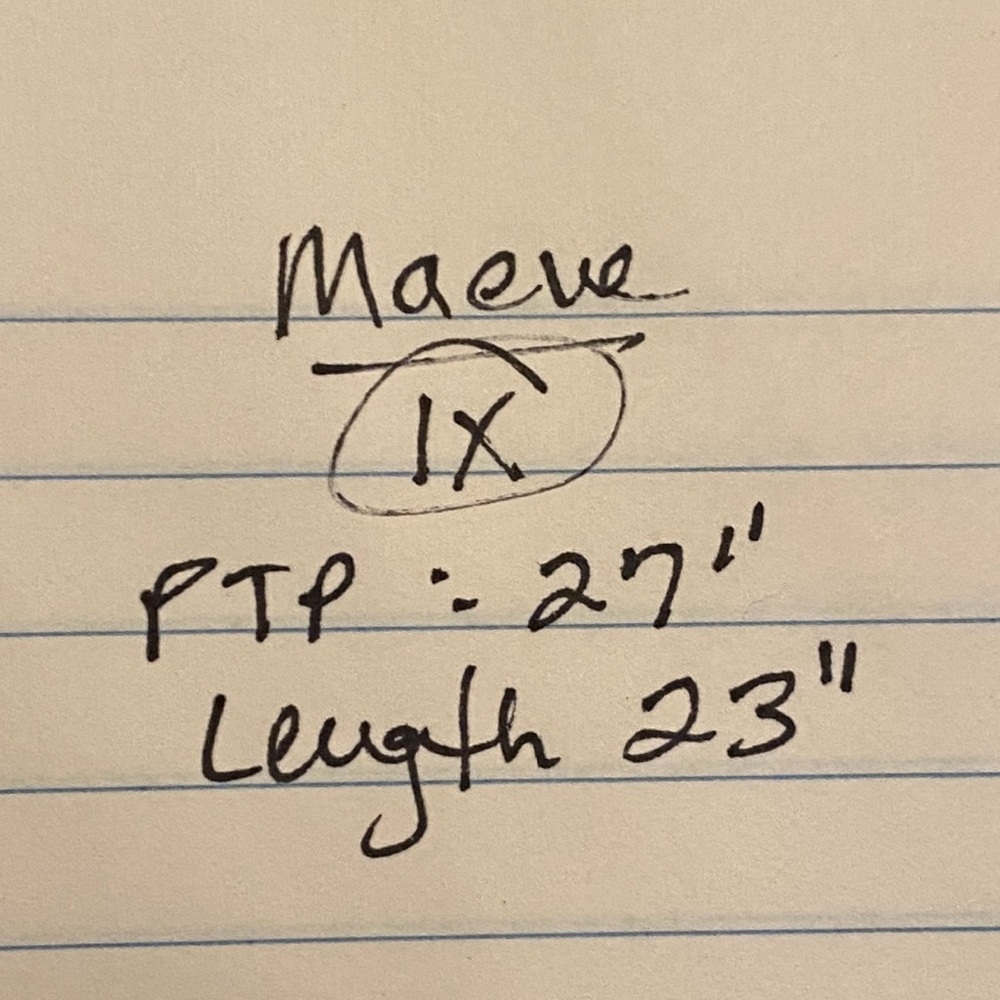 Maeve
1X
PTP : 27"
Length 23"